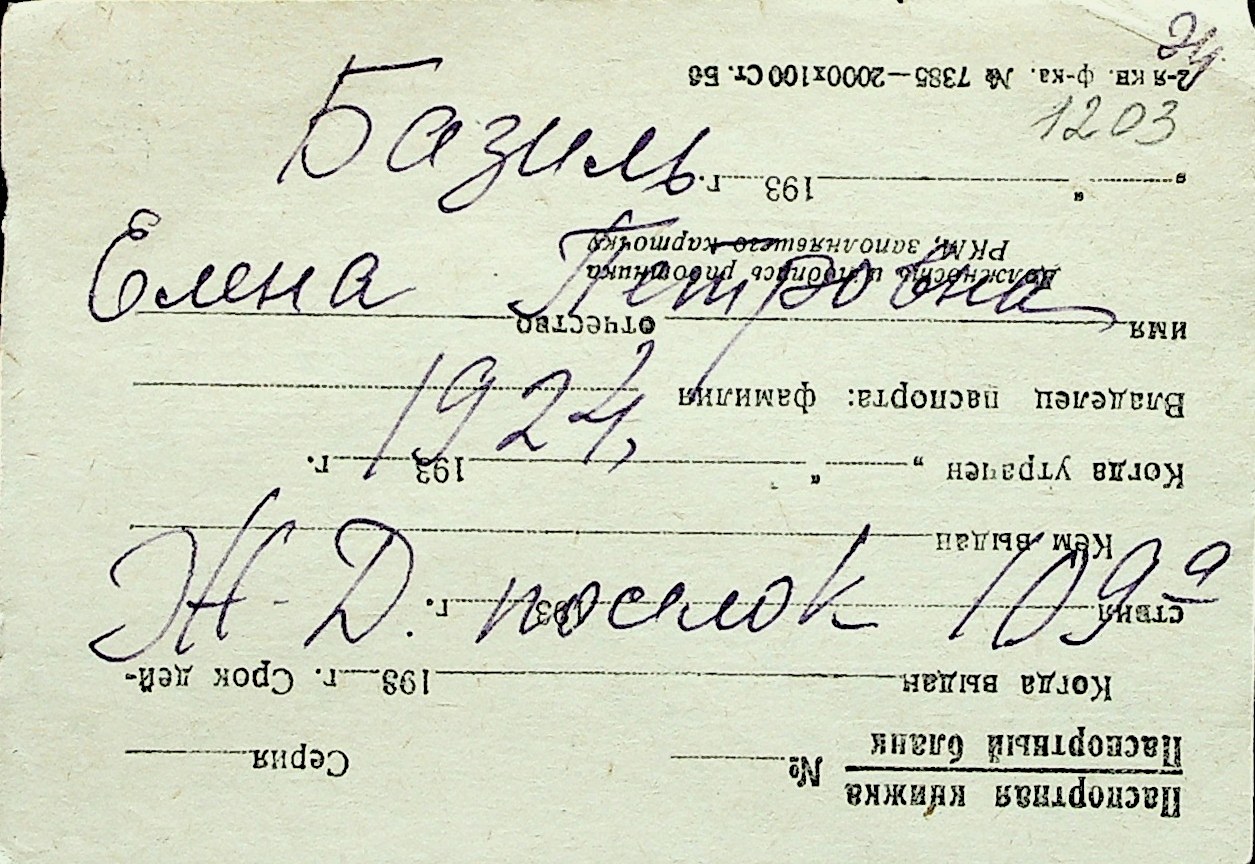 1203
Базиль
Елена Петровна
1924,
Ж-Д. поселок 109а
Паспортная книжка
Паспортный бланк
№ Серия
Когда выдан 193 г. Срок дей-
ствия 193 г.
Кем выдан
Когда утрачен „ “ 193 г.
Владелец паспорта: фамилия
имя отчество
Должность и подпись работника
РКМ, заполнявшего карточку
„ “ 193 г.
2-я кв. ф-ка. № 7385—2000х100 Ст. Бб